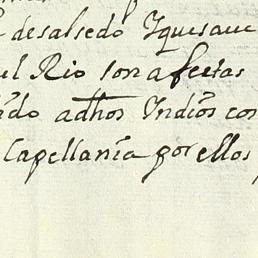 desalsedo Yquesaue
el Rio son afectas
do adhos Indios con
Capellania por ellos